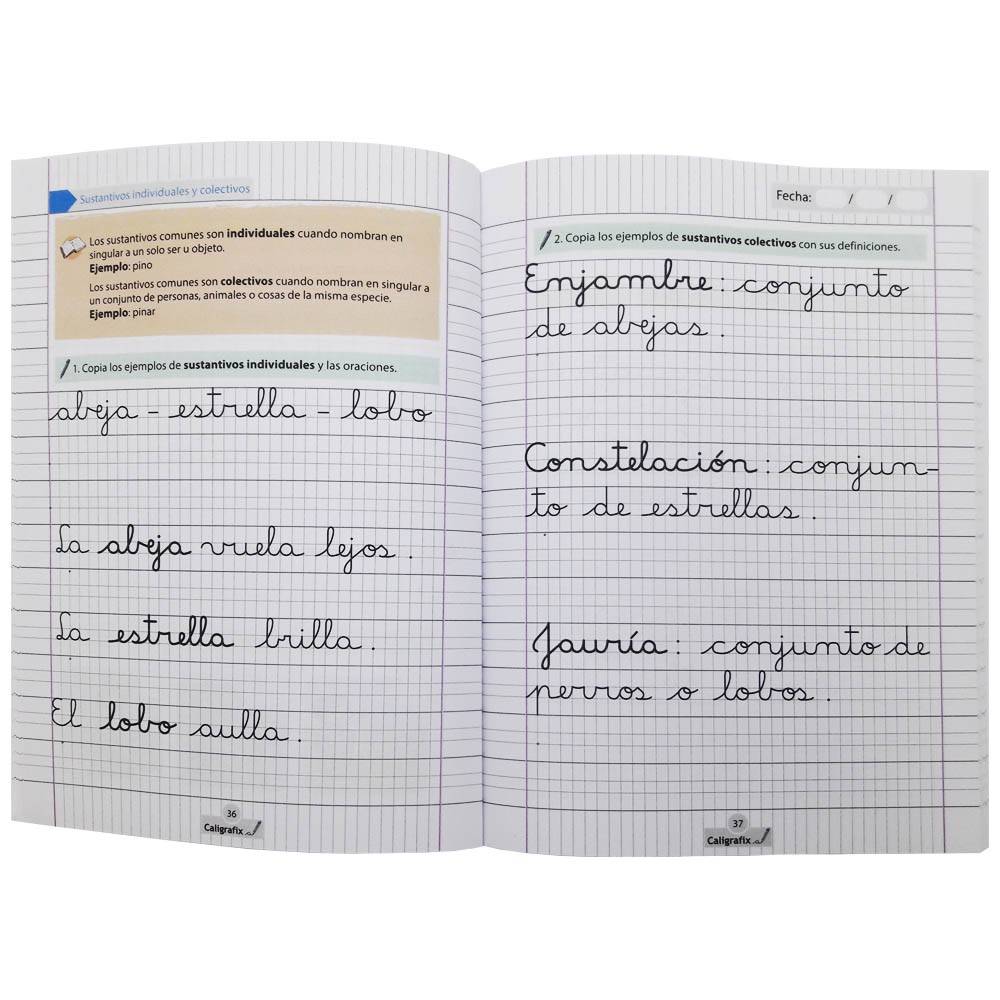 Sustantivos individuales y colectivos
Los sustantivos comunes son individuales cuando nombran en
singular a un solo ser u objeto.
Ejemplo: pino
Los sustantivos comunes son colectivos cuando nombran en singular a
un conjunto de personas, animales o cosas de la misma especie.
Ejemplo: pinar
1. Copia los ejemplos de sustantivos individuales y las oraciones.
abeja - estrella - lobo
La abeja vuela lejos.
La estrella brilla.
El lobo aulla.
36
Caligrafix
Fecha: / /
2. Copia los ejemplos de sustantivos colectivos con sus definiciones.
Enjambre: conjunto
de abejas.
Constelación: conjun-
to de estrellas.
Jauría: conjunto de
perros o lobos.
37
Caligrafix